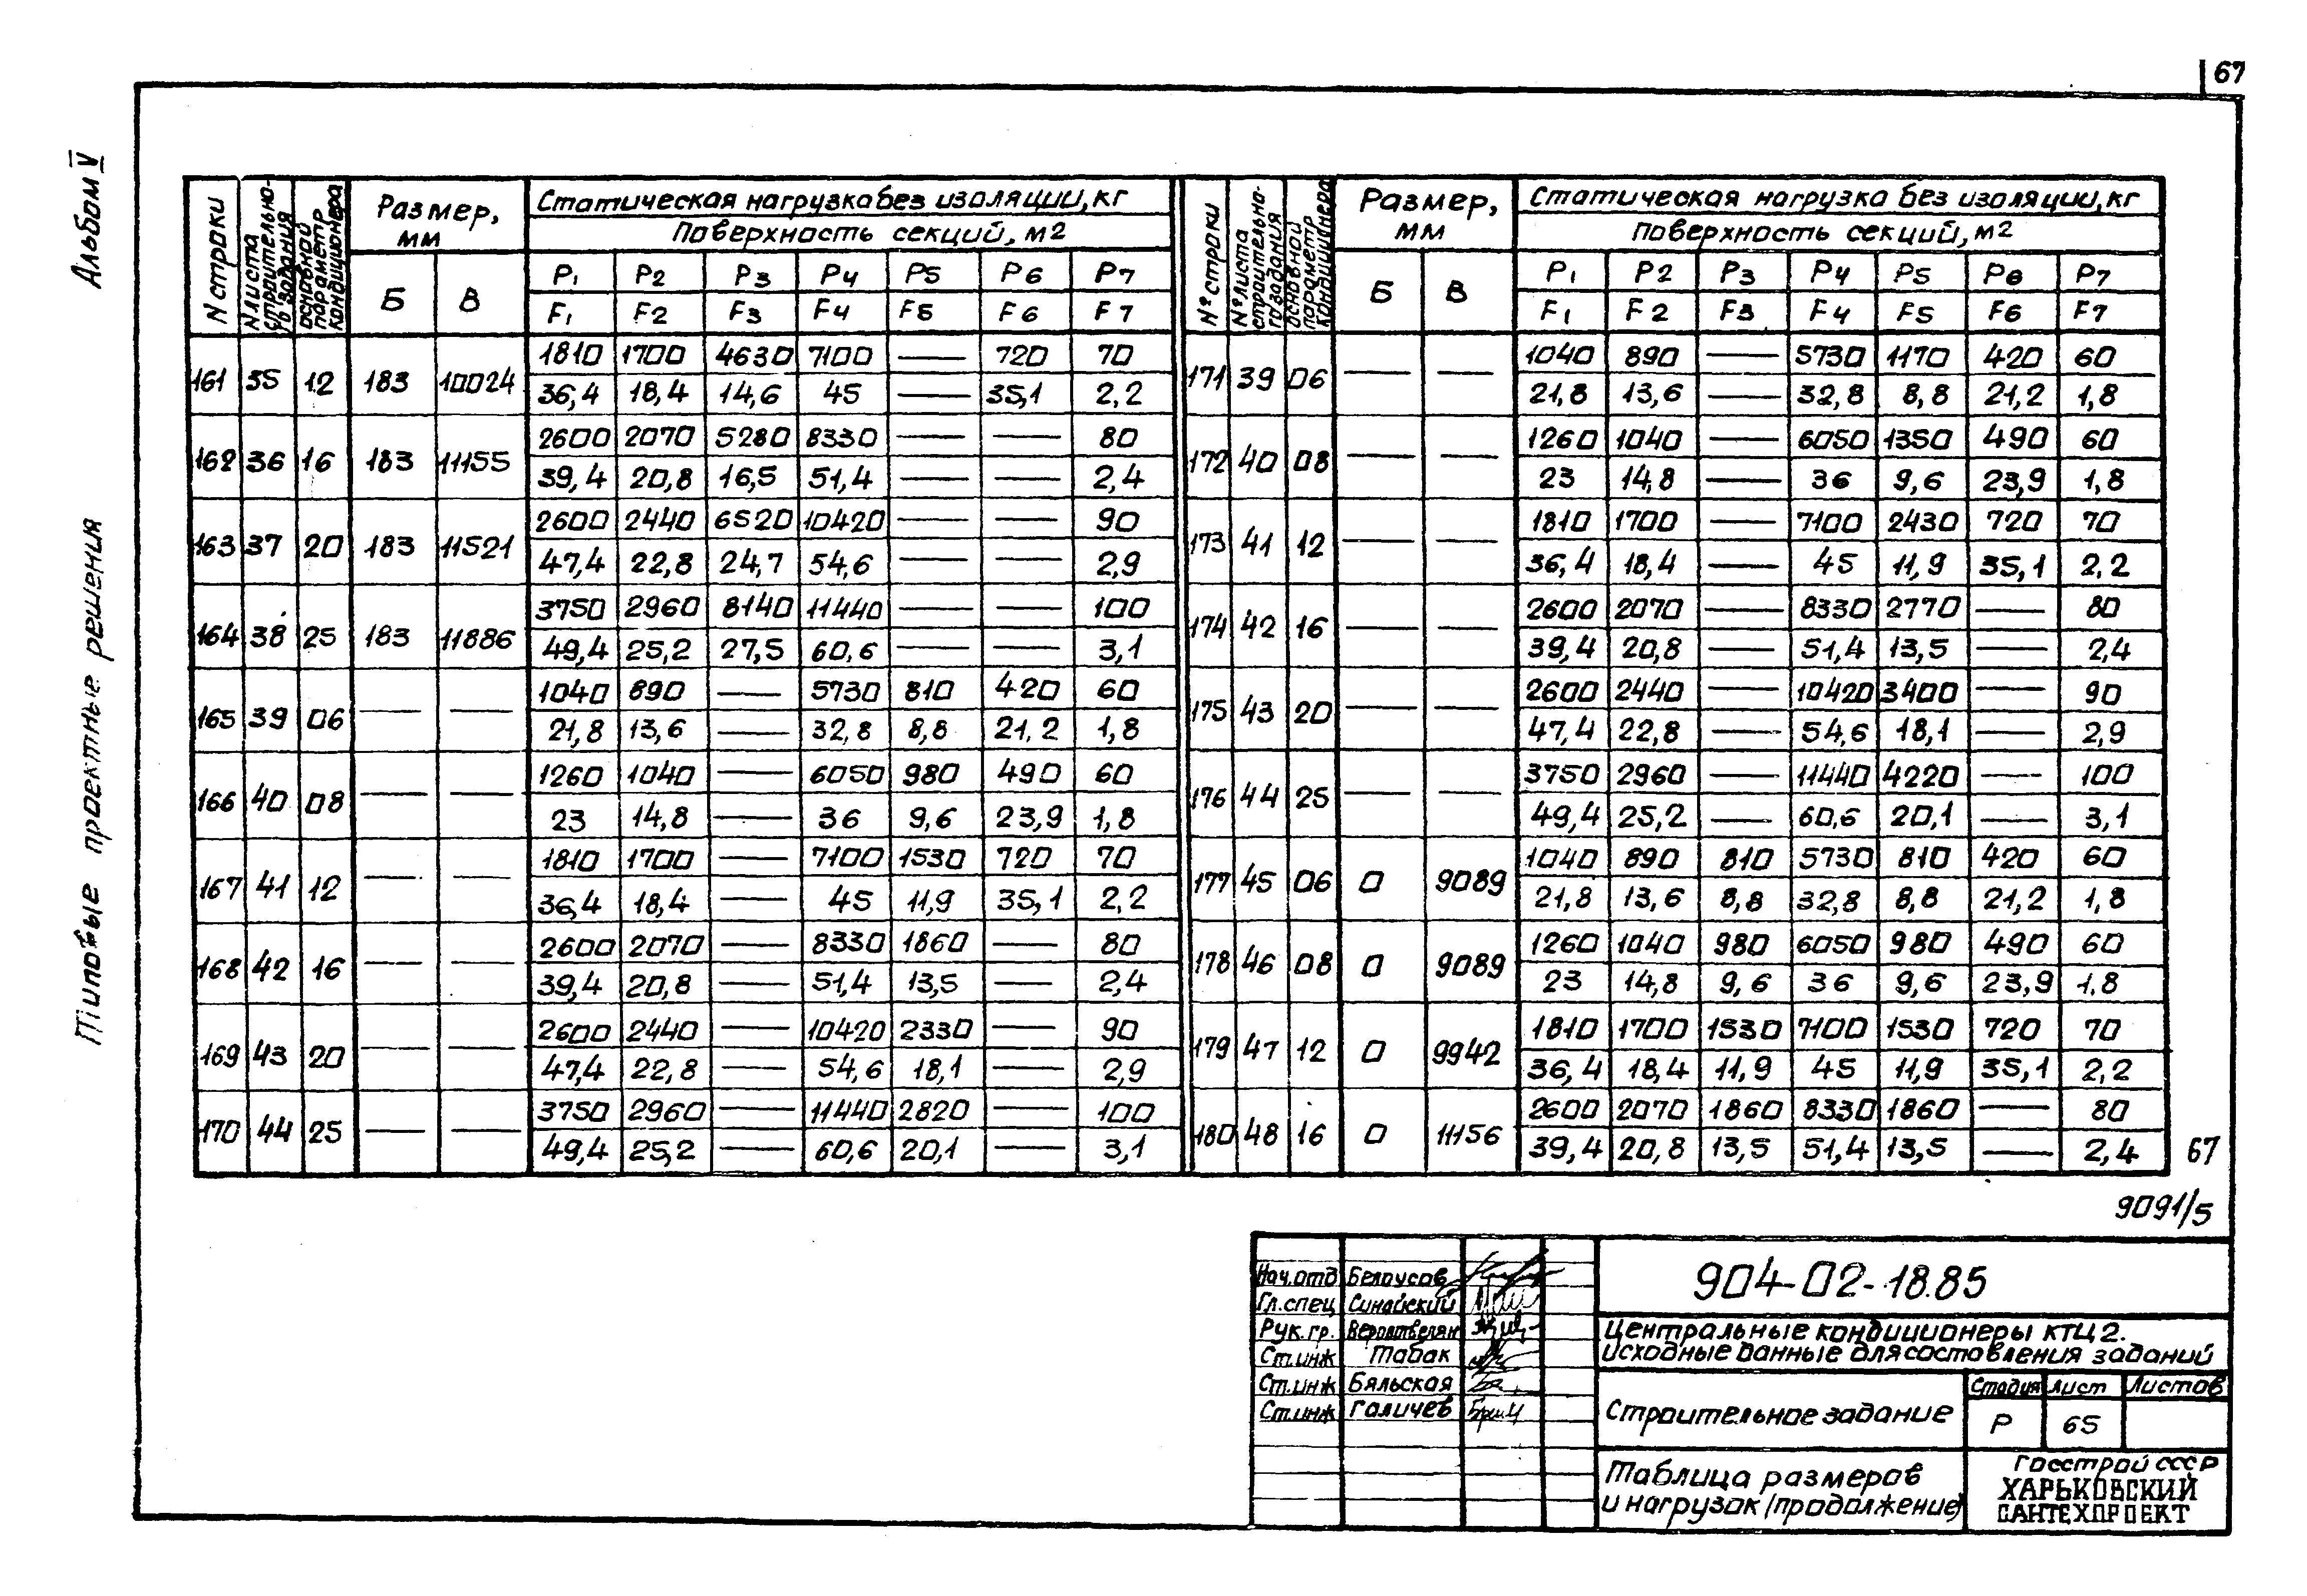 67
Альбом V
Типовые проектные решения
N строки
N листа строительного задания
Основной параметр кондиционера
Размер, мм
Статическая нагрузка без изоляции, кг
Поверхность секций, м2
Б В
P1 P2 P3 P4 P5 P6 P7
F1 F2 F3 F4 F5 F6 F7
161 35 12 183 10024
1810 1700 4630 7100 — 720 70
36,4 18,4 14,6 45 — 35,1 2,2
162 36 16 183 11155
2600 2070 5280 8330 — — 80
39,4 20,8 16,5 51,4 — — 2,4
163 37 20 183 11521
2600 2440 6520 10420 — — 90
47,4 22,8 24,7 54,6 — — 2,9
164 38 25 183 11886
3750 2960 8140 11440 — — 100
49,4 25,2 27,5 60,6 — — 3,1
165 39 06 — —
1040 890 — 5730 810 420 60
21,8 13,6 — 32,8 8,8 21,2 1,8
166 40 08 — —
1260 1040 — 6050 980 490 60
23 14,8 — 36 9,6 23,9 1,8
167 41 12 — —
1810 1700 — 7100 1530 720 70
36,4 18,4 — 45 11,9 35,1 2,2
168 42 16 — —
2600 2070 — 8330 1860 — 80
39,4 20,8 — 51,4 13,5 — 2,4
169 43 20 — —
2600 2440 — 10420 2330 — 90
47,4 22,8 — 54,6 18,1 — 2,9
170 44 25 — —
3750 2960 — 11440 2820 — 100
49,4 25,2 — 60,6 20,1 — 3,1
№ строки
№ листа строительного задания
Основной параметр кондиционера
Размер, мм
Статическая нагрузка без изоляции, кг
Поверхность секций, м2
Б В
P1 P2 P3 P4 P5 P6 P7
F1 F2 F3 F4 F5 F6 F7
171 39 06 — —
1040 890 — 5730 1170 420 60
21,8 13,6 — 32,8 8,8 21,2 1,8
172 40 08 — —
1260 1040 — 6050 1350 490 60
23 14,8 — 36 9,6 23,9 1,8
173 41 12 — —
1810 1700 — 7100 2430 720 70
36,4 18,4 — 45 11,9 35,1 2,2
174 42 16 — —
2600 2070 — 8330 2770 — 80
39,4 20,8 — 51,4 13,5 — 2,4
175 43 20 — —
2600 2440 — 10420 3400 — 90
47,4 22,8 — 54,6 18,1 — 2,9
176 44 25 — —
3750 2960 — 11440 4220 — 100
49,4 25,2 — 60,6 20,1 — 3,1
177 45 06 0 9089
1040 890 810 5730 810 420 60
21,8 13,6 8,8 32,8 8,8 21,2 1,8
178 46 08 0 9089
1260 1040 980 6050 980 490 60
23 14,8 9,6 36 9,6 23,9 1,8
179 47 12 0 9942
1810 1700 1530 7100 1530 720 70
36,4 18,4 11,9 45 11,9 35,1 2,2
180 48 16 0 11156
2600 2070 1860 8330 1860 — 80
39,4 20,8 13,5 51,4 13,5 — 2,4
67
9091/5
Нач.отд Белоусов
Гл.спец Синайский
Рук.гр.
Ст.инж Табак
Ст.инж Бяльская
Ст.инж Галичев
904-02-18.85
Центральные кондиционеры КТЦ2.
Исходные данные для составления заданий
Строительное задание
Стадия Лист Листов
Р 65
Таблица размеров
и нагрузок (продолжение)
Госстрой СССР
ХАРЬКОВСКИЙ
САНТЕХПРОЕКТ